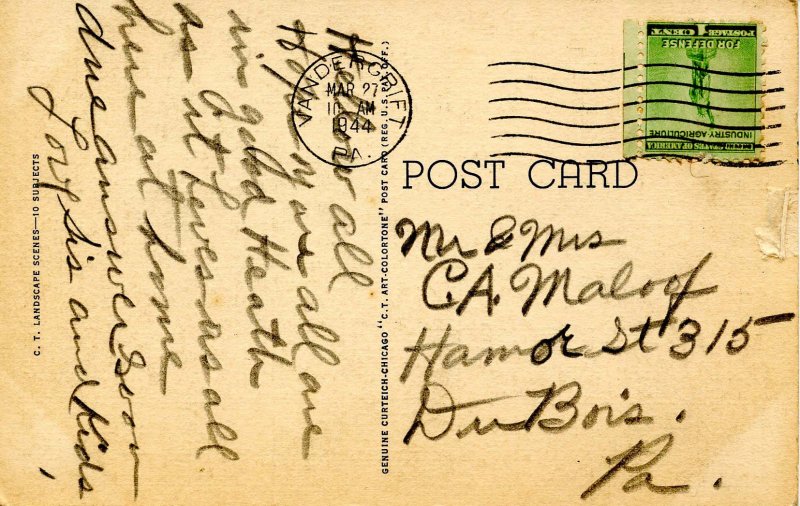 Hello now all
Hope you are all are
in Heath
as it leves us all
here at home
answer Soon
Love Sis and Kids,
C. T. LANDSCAPE SCENES—10 SUBJECTS
GENUINE CURTEICH-CHICAGO "C. T. ART-COLORTONE" POST CARD (REG. U.S. PAT. OFF.)
VANDERGRIFT
MAR 27
10 AM
1944
PA.
UNITED STATES OF AMERICA
INDUSTRY AGRICULTURE
FOR DEFENSE
POSTAGE 1 CENT
POST CARD
Mr & Mrs
C.A. Maloof
Hamor St 315
Du Bois.
Pa.